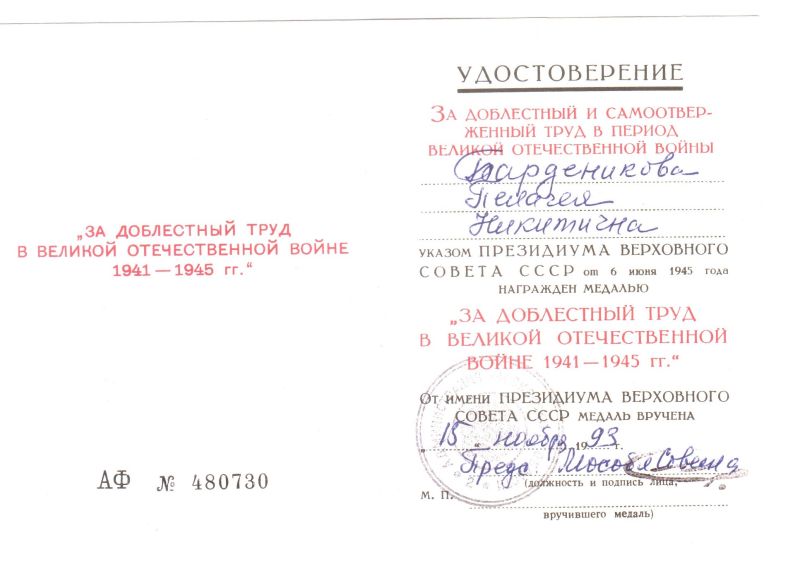 „ЗА ДОБЛЕСТНЫЙ ТРУД
В ВЕЛИКОЙ ОТЕЧЕСТВЕННОЙ ВОЙНЕ
1941—1945 гг.“
АФ № 480730
УДОСТОВЕРЕНИЕ
ЗА ДОБЛЕСТНЫЙ И САМООТВЕР-
ЖЕННЫЙ ТРУД В ПЕРИОД
ВЕЛИКОЙ ОТЕЧЕСТВЕННОЙ ВОЙНЫ
Барденикова
Пелагея
Никитична
УКАЗОМ ПРЕЗИДИУМА ВЕРХОВНОГО
СОВЕТА СССР от 6 июня 1945 года
НАГРАЖДЕН МЕДАЛЬЮ
„ЗА ДОБЛЕСТНЫЙ ТРУД
В ВЕЛИКОЙ ОТЕЧЕСТВЕННОЙ
ВОЙНЕ 1941—1945 гг.“
ОТ ИМЕНИ ПРЕЗИДИУМА ВЕРХОВНОГО
СОВЕТА СССР МЕДАЛЬ ВРУЧЕНА
„15“ ноября 1993 г.
Пред
(должность и подпись лица,
М. П.
вручившего медаль)